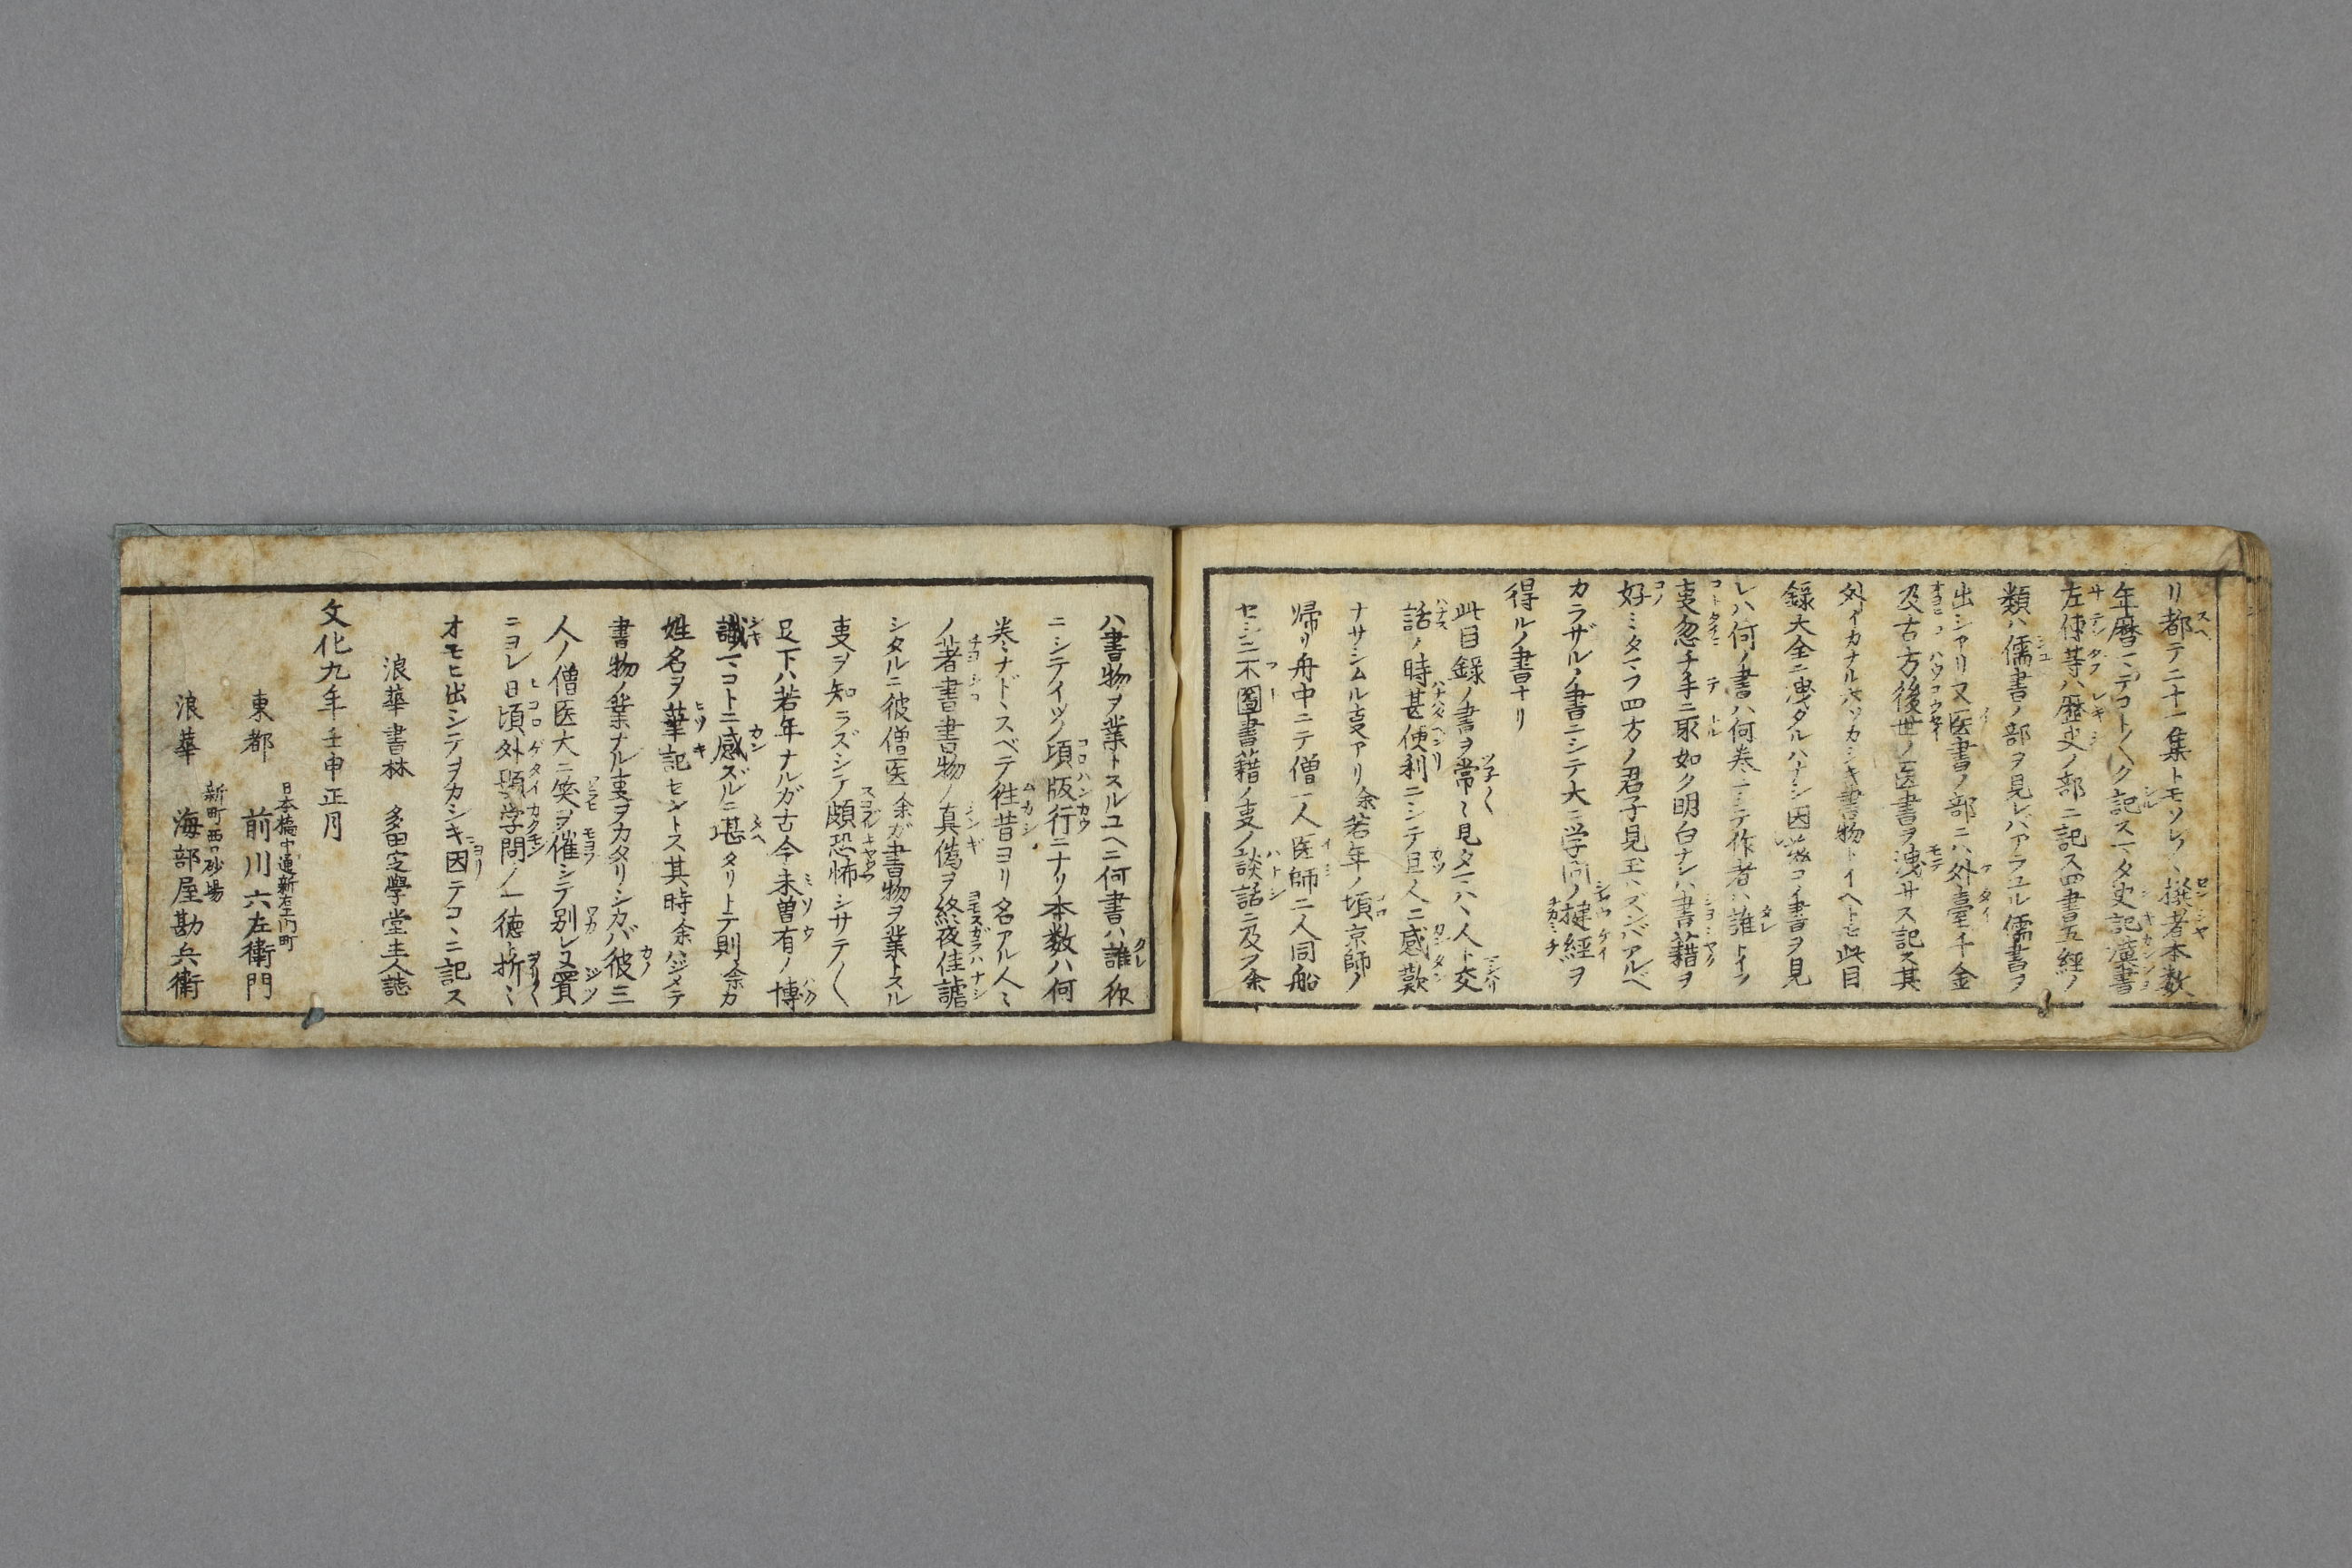 リ都テ二十一集トモソレ〱撰者本数
年暦マデコト〱ク記スマタ史記漢書
左傳等ハ歴史ノ部ニ記ス四書五経ノ
類ハ儒書ノ部ヲ見レバアラユル儒書ヲ
出シアリ又医書ノ部ニハ外臺千金
及古方後世ノ医書ヲ洩サス記ス其
外イカナル六ツカシキ書物トイヘトモ此目
録大全ニ洩タルハナシ因茲コノ書ヲ見
レハ何ノ書ハ何巻ニシテ作者ハ誰トイフ
叓忽チ手ニ取如ク明白ナレハ書籍ヲ
好ミタマフ四方ノ君子見玉ハズンバアルベ
カラザルノ書ニシテ大ニ学问ノ捷経ヲ
得ルノ書ナリ
此目録ノ書ヲ常〻見タマハヽ人ト交
話ノ時甚便利ニシテ且人ニ感歎
ナサシムル叓アリ余若年ノ頃京師ノ
帰リ舟中ニテ僧一人医師二人同船
セシニ不圖書籍ノ叓ノ談話ニ及フ余
ハ書物ヲ業トスルユヘニ何書ハ誰ノ作
ニシテイツノ頃版行ニナリ本数ハ何
巻ナドヽスベテ徃昔ヨリ名アル人〻
ノ著書書物ノ真偽ヲ終夜佳謔
シタルニ彼僧医余ガ書物ヲ業トスル
叓ヲ知ラズシテ頗恐怖シサテ〱
足下ハ若年ナルガ古今未曽有ノ博
識マコトニ感ズルニ堪タリトテ則余カ
姓名ヲ筆記セントス其時余ハジメテ
書物ノ業ナル叓ヲカタリシカバ彼三
人ノ僧医大ニ笑ヲ催シテ別レヌ實
ニヨレ日頃外題学問ノ一徳ト折〻
オモヒ出シテヲカシキ因テコヽニ記ス
浪華書林 多田定學堂主人誌
文化九年壬申正月
東都 日本橋中通新右エ門町 前川六左衛門
浪華 新町西口砂場 海部屋勘兵衛